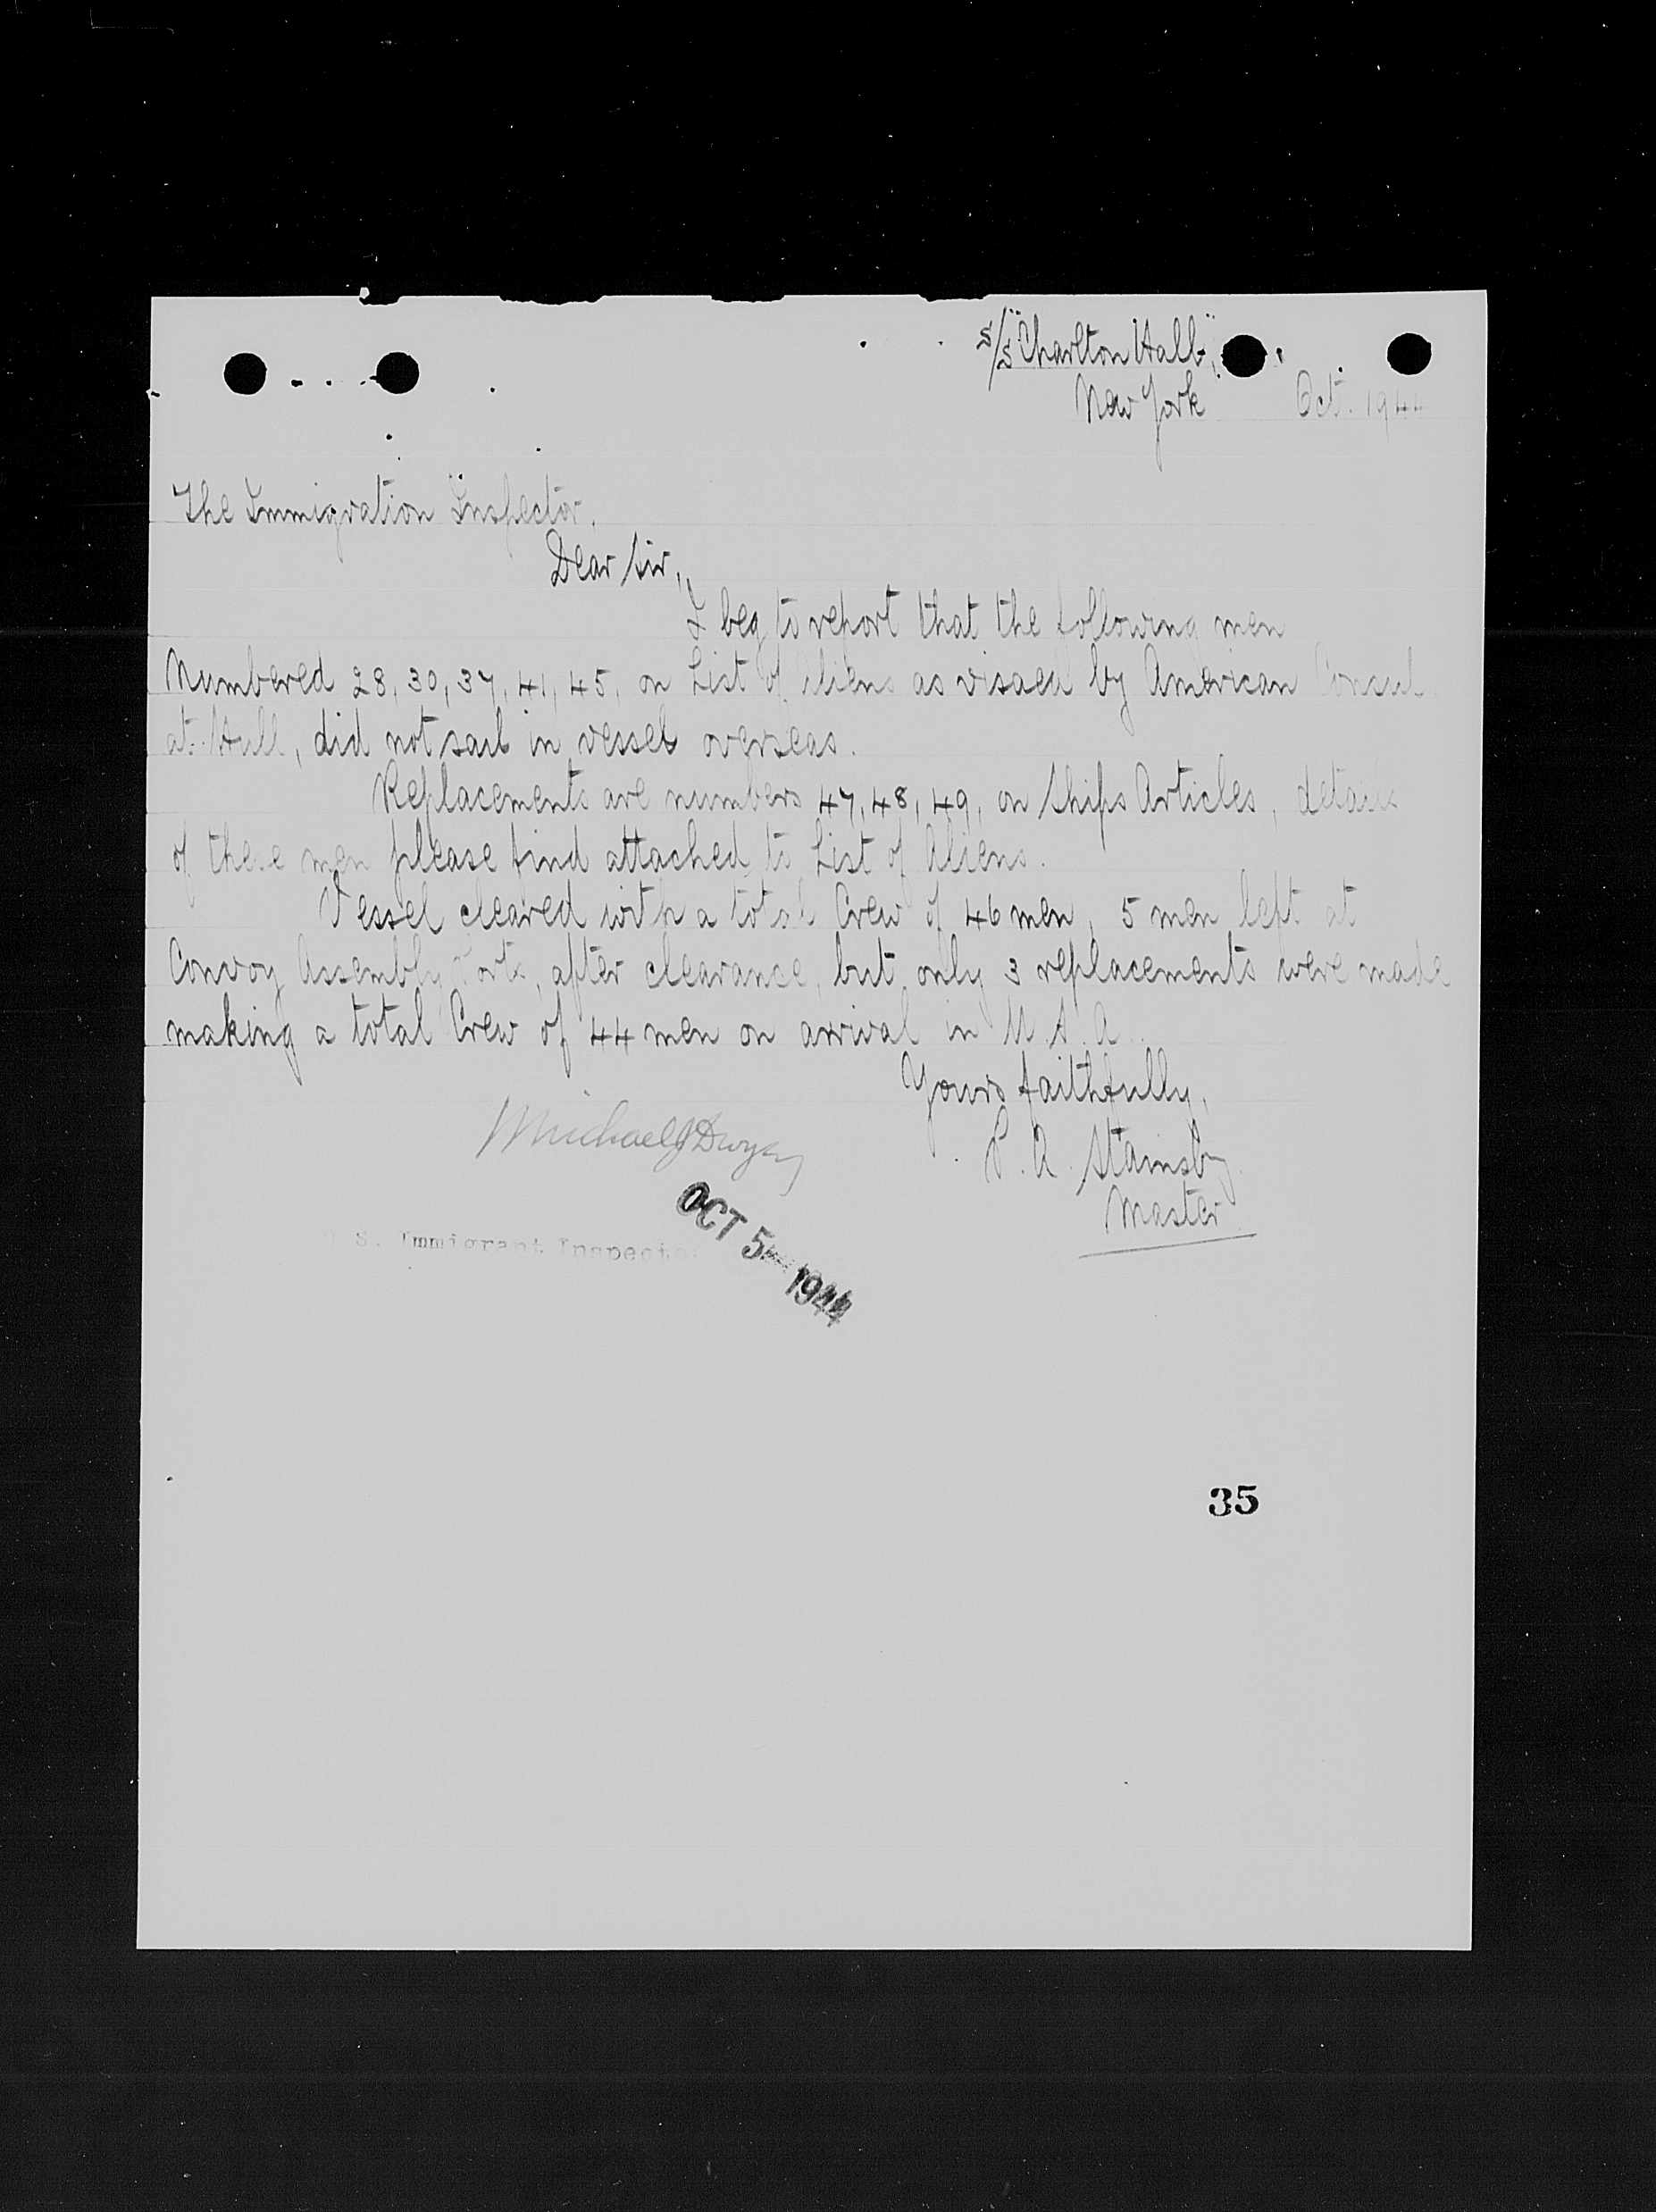 S/S "Charlton Hall",
New York Oct. 1944
The Immigration Inspector.
Dear Sir,
I beg to report that the following men
Numbered 28, 30, 37, 41, 45, on List of Aliens as visaed by American Consul
at Hull, did not sail in vessel overseas.
Replacements are numbers 47, 48, 49, on Ships Articles, details
of these men please find attached to List of Aliens.
Vessel cleared with a total Crew of 46 men, 5 men left at
Convoy Assembly Ports, after clearance, but only 3 replacements were made
making a total Crew of 44 men on arrival in U.S.A.
Yours faithfully,
P. A. Stainsby
Master
Michael J Dwyer
OCT 5 - 1944
U S. Immigrant Inspector
35